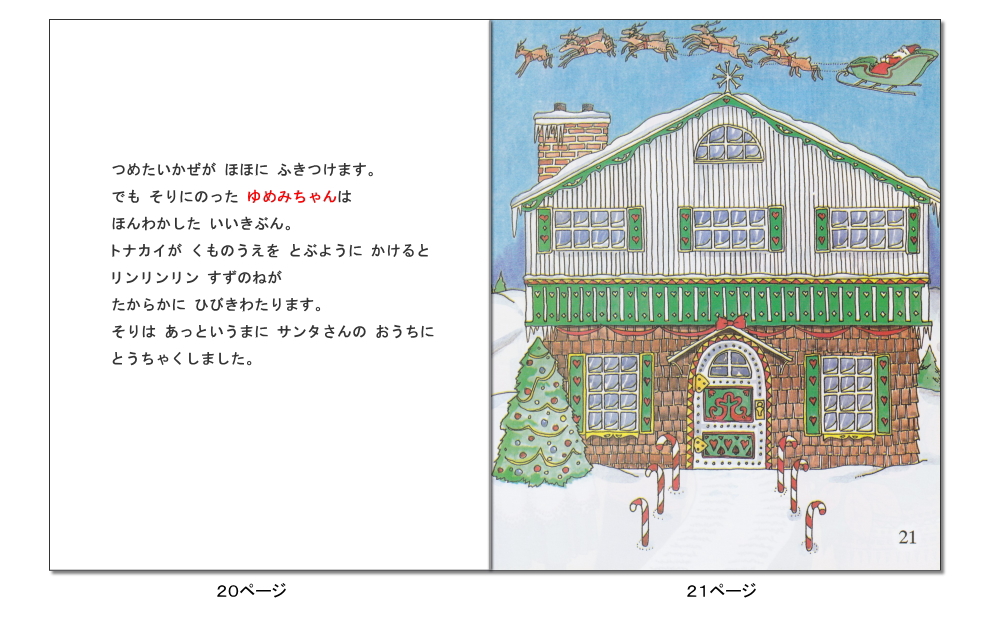 つめたいかぜが ほほに ふきつけます。
でも そりにのった ゆめみちゃんは
ほんわかした いいきぶん。
トナカイが くものうえを とぶように かけると
リンリンリン すずのねが
たからかに ひびきわたります。
そりは あっというまに サンタさんの おうちに
とうちゃくしました。
21
20ページ
21ページ